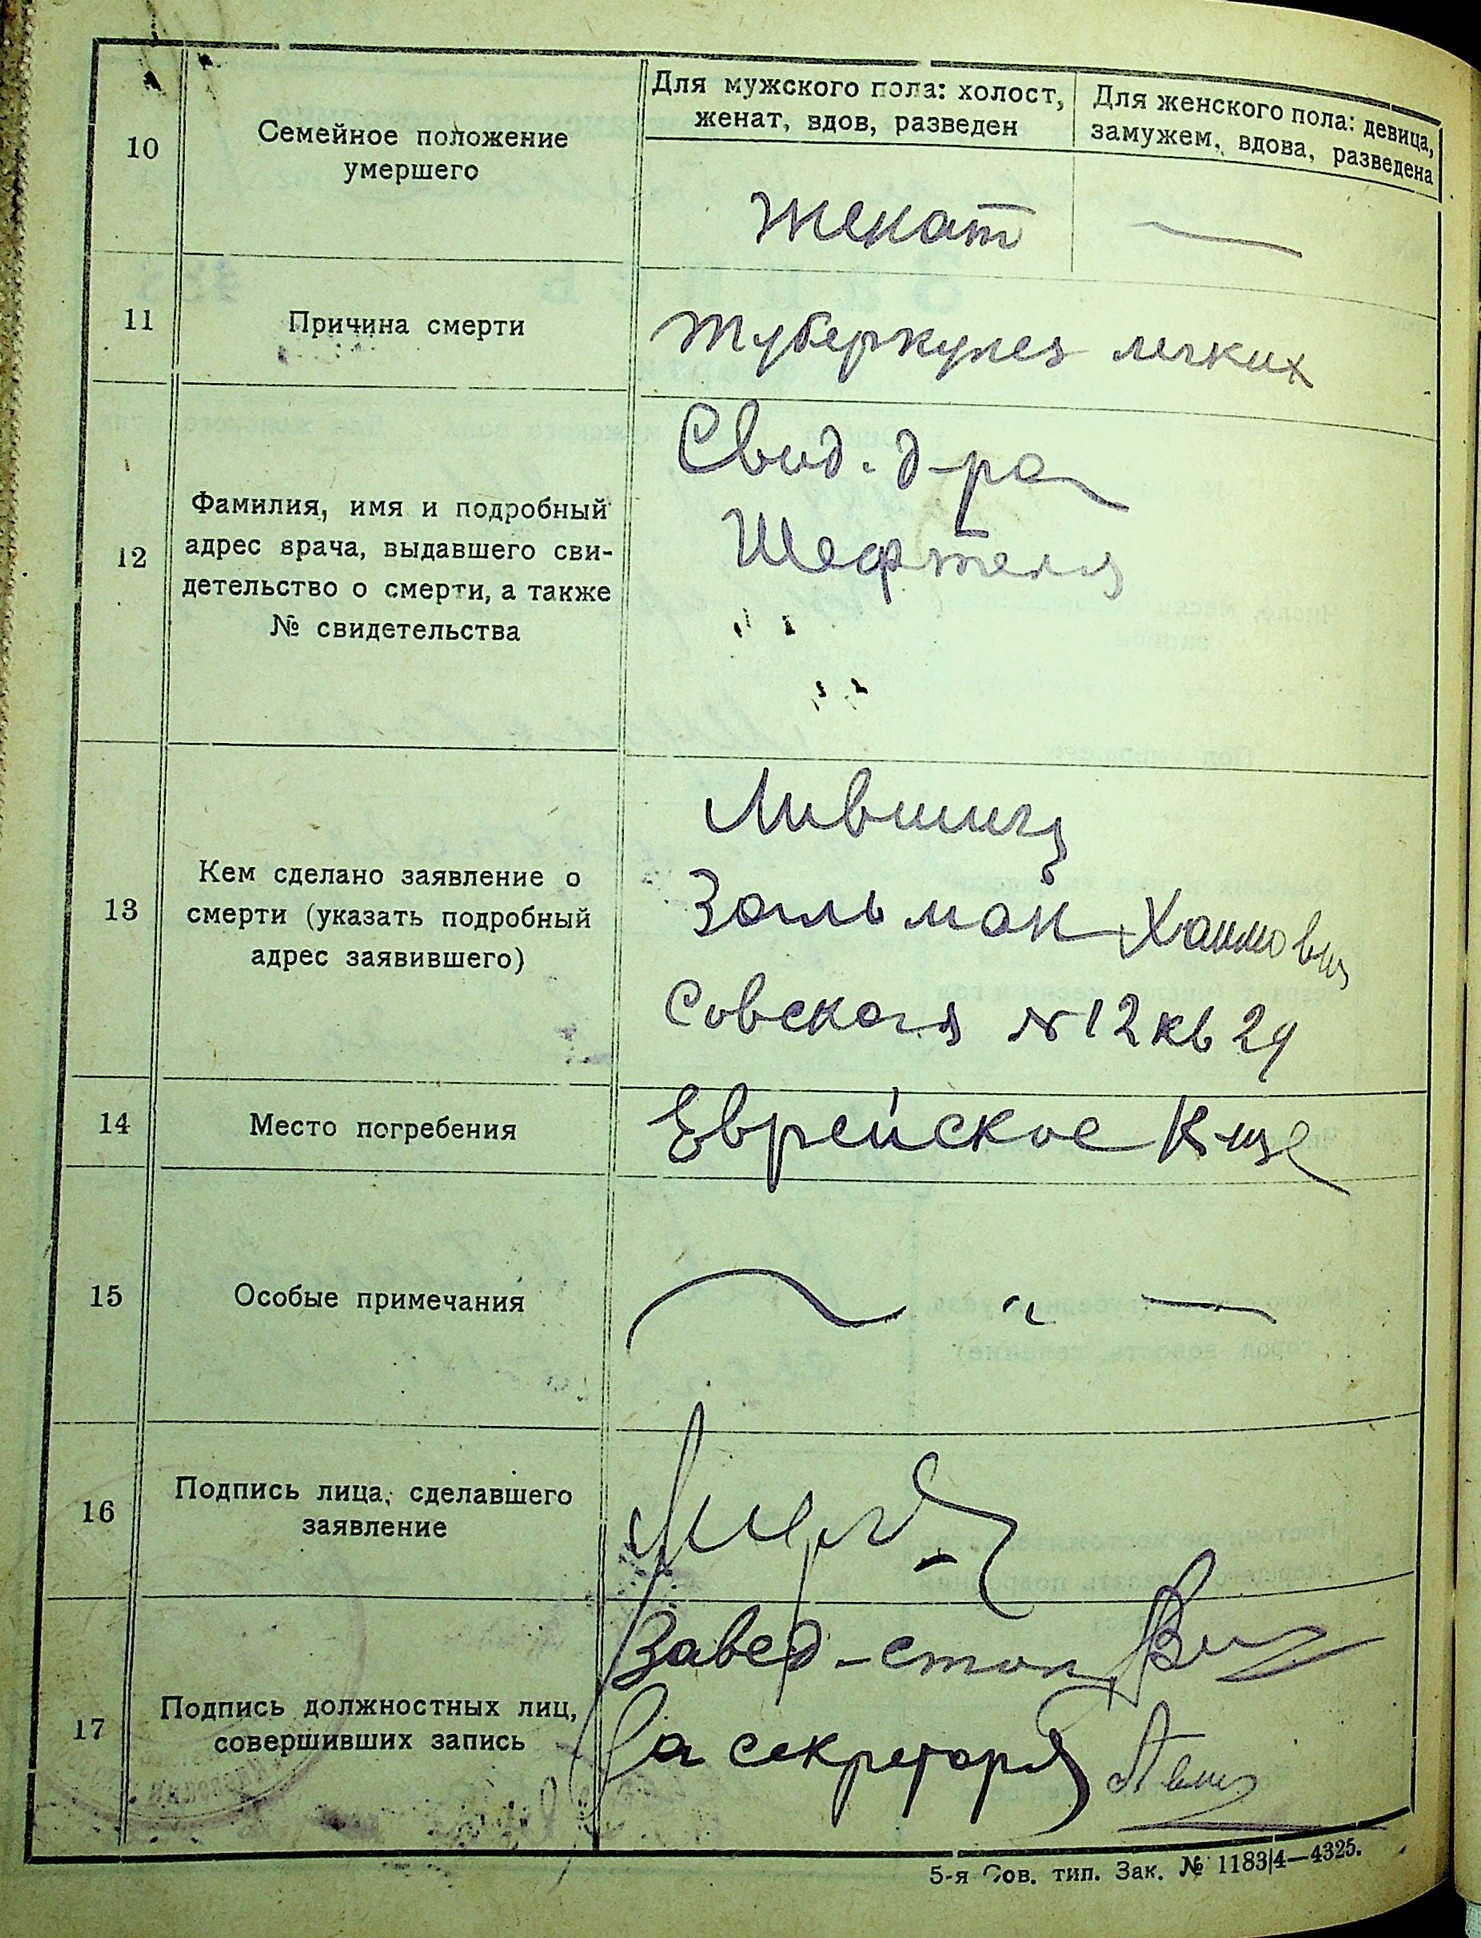 Для мужского пола: холост,
женат, вдов, разведен
Для женского пола: девица,
замужем, вдова, разведена
10
Семейное положение
умершего
женат
—
11
Причина смерти
туберкулез легких
12
Фамилия, имя и подробный
адрес врача, выдавшего сви-
детельство о смерти, а также
№ свидетельства
Свид. д-ра
Шефтеля
13
Кем сделано заявление о
смерти (указать подробный
адрес заявившего)
Лившиц
Зальман Хаимович
Совская № 12 кв 29
14
Место погребения
Еврейское К-ще
15
Особые примечания
16
Подпись лица, сделавшего
заявление
17
Подпись должностных лиц,
совершивших запись
Завед-стол
За секретаря
5-я Сов. тип. Зак. № 1183|4—4325.